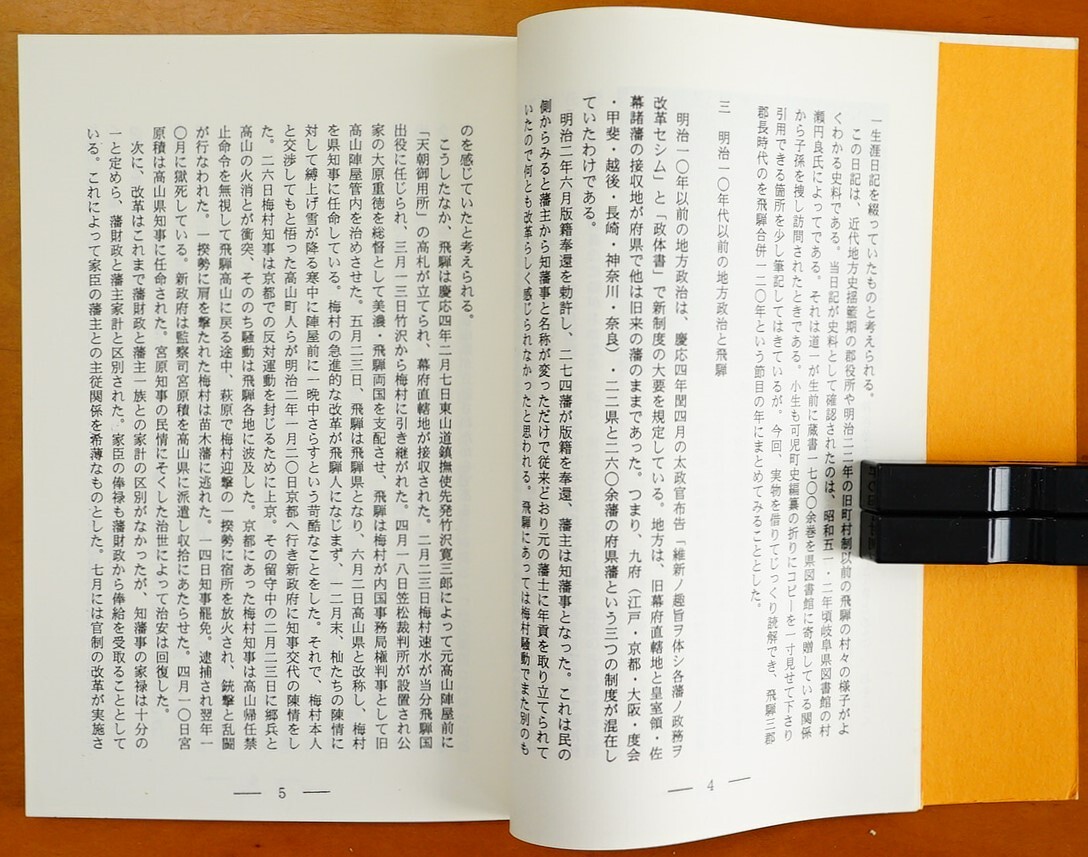 一生涯日記を綴っていたものと考えられる。
この日記は、近代地方史揺籃期の郡役所や明治二二年の旧町村制以前の飛騨の村々の様子がよ
くわかる史料である。当日記が史料として確認されたのは、昭和五一・二年頃岐阜県図書館の村
瀬円良氏によってである。それは道一が生前に蔵書一七〇〇余巻を県図書館に寄贈している関係
から子孫を捜し訪問されたときである。小生も可児町史編纂の折りにコピーを一寸見せて下さり
引用できる箇所を少し筆記してはきているが。今回、実物を借りてじっくり読解でき、飛騨三郡
郡長時代のを飛騨合併一二〇年という節目の年にまとめてみることとした。
三 明治一〇年代以前の地方政治と飛騨
明治一〇年以前の地方政治は、慶応四年閏四月の太政官布告「維新ノ趣旨ヲ体シ各藩ノ政務ヲ
改革セシム」と「政体書」で新制度の大要を規定している。地方は、旧幕府直轄地と皇室領・佐
幕諸藩の接収地が府県で他は旧来の藩のままであった。つまり、九府（江戸・京都・大阪・度会
・甲斐・越後・長崎・神奈川・奈良）・二二県と二六〇余藩の府県藩という三つの制度が混在し
ていたわけである。
明治二年六月版籍奉還を勅許し、二七四藩が版籍を奉還、藩主は知藩事となった。これは民の
側からみると藩主から知藩事と名称が変っただけで従来どおり元の藩士に年貢を取り立てられて
いたので何とも改革らしく感じられなかったと思われる。飛騨にあっては梅村騒動でまた別のも
— 4 —
のを感じていたと考えられる。
こうしたなか、飛騨は慶応四年二月七日東山道鎮撫使先発竹沢寛三郎によって元高山陣屋前に
「天朝御用所」の高札が立てられ、幕府直轄地が接収された。二月二三日梅村速水が当分飛騨国
出役に任じられ、三月一三日竹沢から梅村に引き継がれた。四月一八日笠松裁判所が設置され公
家の大原重徳を総督として美濃・飛騨両国を支配させ、飛騨は梅村が内国事務局権判事として旧
高山陣屋管内を治めさせた。五月二三日、飛騨は飛騨県となり、六月二日高山県と改称し、梅村
を県知事に任命している。梅村の急進的な改革が飛騨人になじまず、一二月末、杣たちの陳情に
対して縛上げ雪が降る寒中に陣屋前に一晩中さらすという苛酷なことをした。それで、梅村本人
と交渉してもと悟った高山町人らが明治二年一月二〇日京都へ行き新政府に知事交代の陳情をし
た。二六日梅村知事は京都での反対運動を封じるために上京。その留守中の二月二三日に郷兵と
高山の火消とが衝突、そののち騒動は飛騨各地に波及した。京都にあった梅村知事は高山帰任禁
止命令を無視して飛騨高山に戻る途中、萩原で梅村迎撃の一揆勢に宿所を放火され、銃撃と乱闘
が行なわれた。一揆勢に肩を撃たれた梅村は苗木藩に逃れた。一四日知事罷免。逮捕され翌年一
〇月に獄死している。新政府は監察司宮原積を高山県に派遣し収拾にあたらせた。四月一〇日宮
原積は高山県知事に任命された。宮原知事の民情にそくした治世によって治安は回復した。
次に、改革はこれまで藩財政と藩主一族との家計の区別がなかったが、知藩事の家禄は十分の
一と定めら、藩財政と藩主家計と区別された。家臣の俸禄も藩財政から俸給を受取ることとして
いる。これによって家臣の藩主との主従関係を希薄なものとした。七月には官制の改革が実施さ
— 5 —